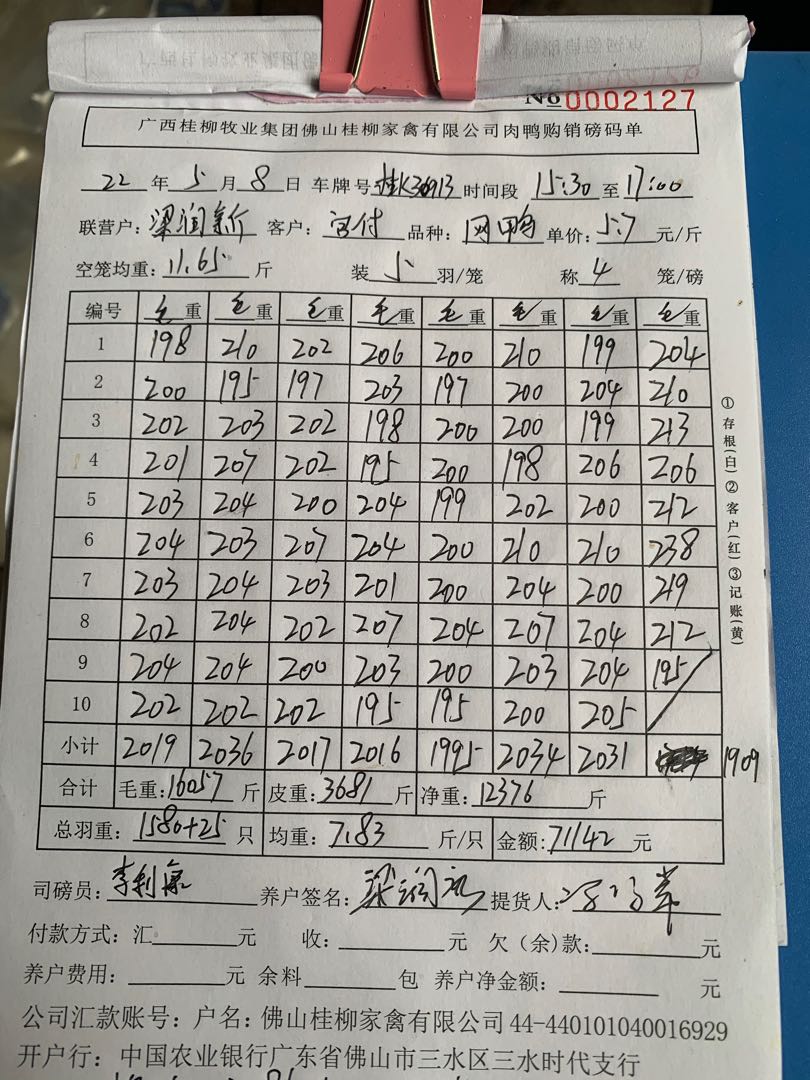 No 0002127
广西桂柳牧业集团佛山桂柳家禽有限公司肉鸭购销磅码单
22 年 5 月 8 日 车牌号 桂K30913 时间段 15:30 至 17:00
联营户: 梁润新 客户: 品种: 网鸭 单价: 5.7 元/斤
空笼均重: 11.65 斤 装 5 羽/笼 称 4 笼/磅
编号 毛重 毛重 毛重 毛重 毛重 毛重 毛重 毛重
1 198 210 202 206 200 210 199 204
2 200 195 197 203 197 200 204 210
3 202 203 202 198 200 200 199 213
4 201 207 202 195 200 198 206 206
5 203 204 200 204 199 202 200 212
6 204 203 207 204 200 210 210 238
7 203 204 203 201 200 204 200 219
8 202 204 202 207 204 207 204 212
9 204 204 200 203 200 203 204 195
10 202 202 202 195 195 200 205
小计 2019 2036 2017 2016 1995 2034 2031 1909
合计 毛重: 16057 斤 皮重: 3681 斤 净重: 12376 斤
总羽重: 1580+25 只 均重: 7.83 斤/只 金额: 71142 元
司磅员: 李利康 养户签名: 提货人:
付款方式: 汇 元 收: 元 欠(余)款: 元
养户费用: 元 余料 包 养户净金额: 元
公司汇款账号: 户名: 佛山桂柳家禽有限公司 44-440101040016929
开户行: 中国农业银行广东省佛山市三水区三水时代支行
①存根(白)②客户(红)③记账(黄)